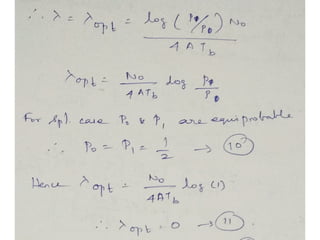 ∴ λ = λopt = log (P0/P0) N0 / 4ATb
λopt = N0/4ATb log P0/P0
For Spl. case P0 & P1 are equiprobable
∴ P0 = P1 = 1/2 → (10)
Hence λopt = N0/4ATb log (1)
∴ λopt = 0 → (11)